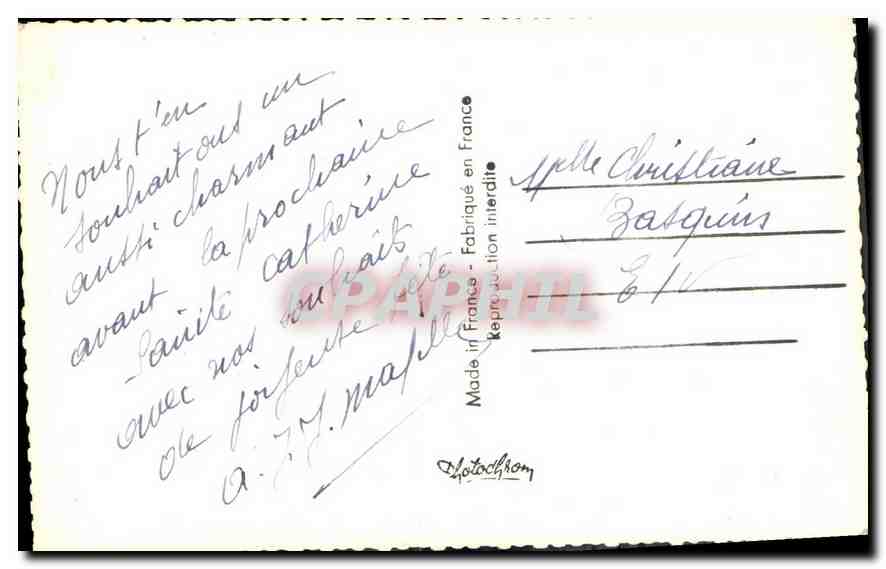 Nous t'en
souhaitons un
aussi charmant
avant la prochaine
Sainte Catherine
avec nos souhaits
de joyeuse fête
a. J. J.
Made in France - Fabriqué en France
Reproduction interdite
Photochrom
CPAPHIL
Melle Christiane
E/V